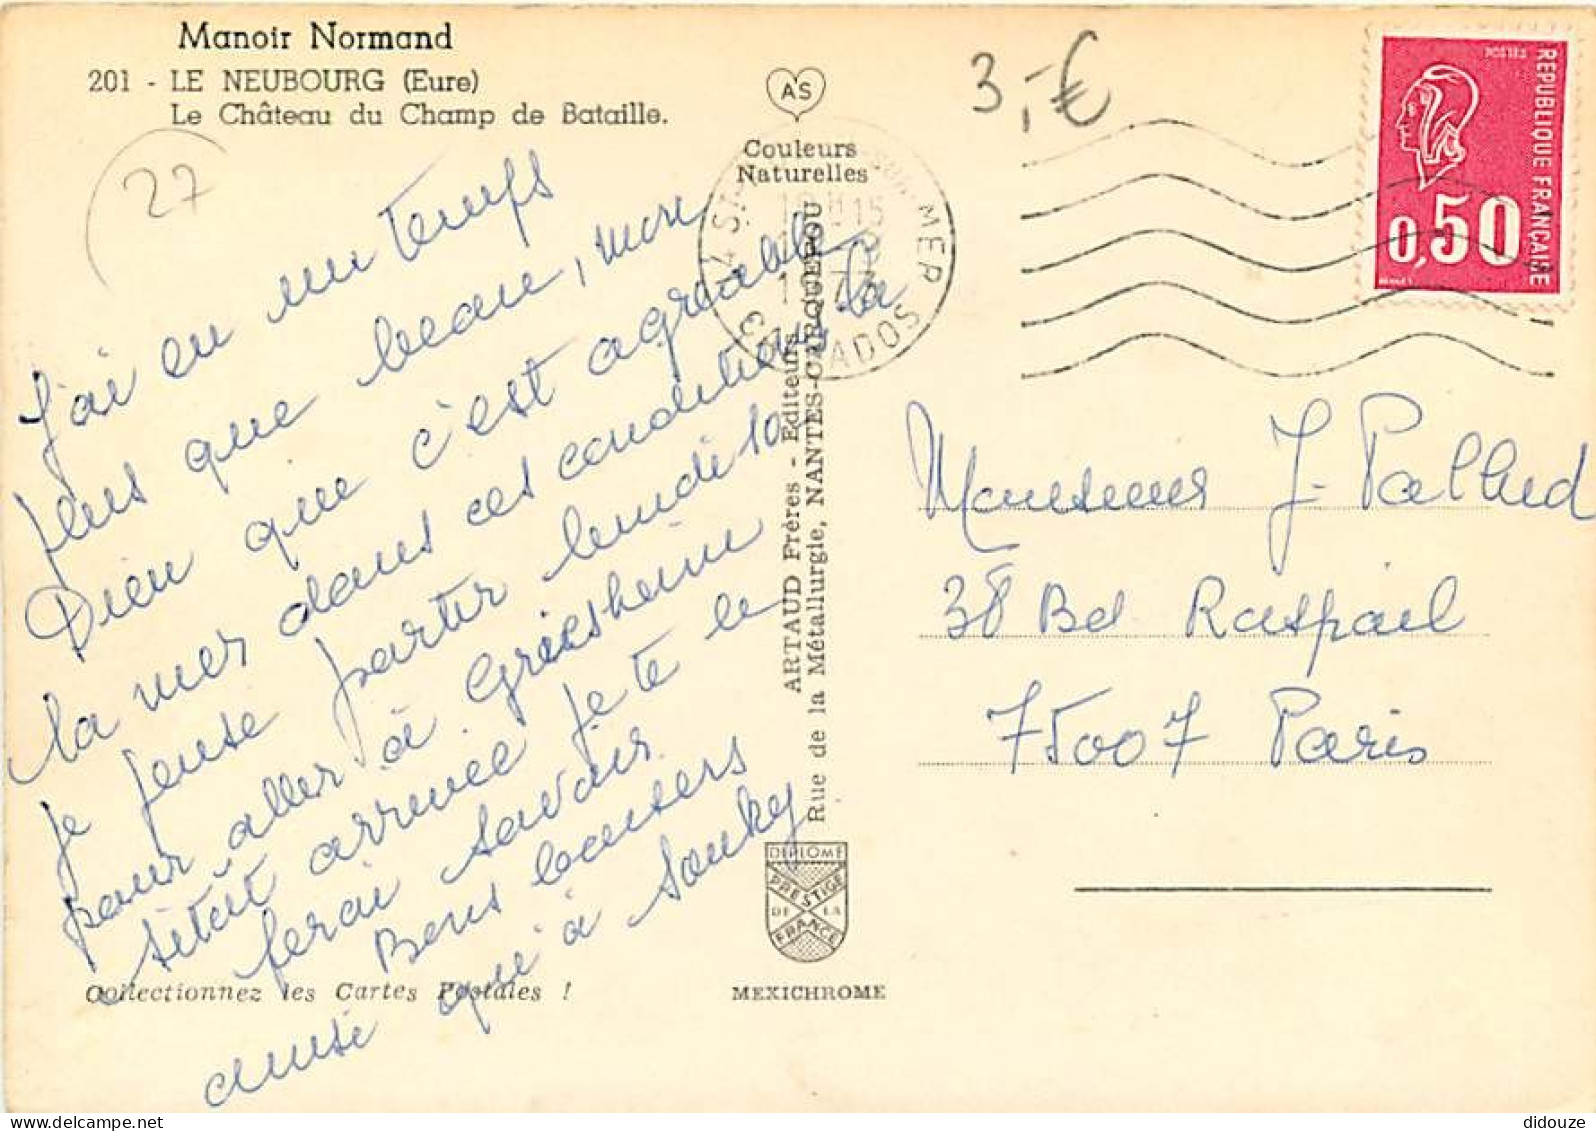 Manoir Normand
201 - LE NEUBOURG (Eure)
Le Château du Champ de Bataille.
27
AS
Couleurs
Naturelles
3,-€
POSTES
REPUBLIQUE FRANÇAISE
0,50
MER
CALVADOS
J'ai eu un temps
plus que beau, mon
Dieu que c'est agréable
la mer dans ces conditions la
je pense partir lundi 10
pour aller à Griesheim
sitôt arrivée je te le
ferai savoir
Bons baisers
ainsi qu'à Souky
ARTAUD Frères - Editeurs
Rue de la Métallurgie, NANTES-CARQUEFOU
Monsieur J. Pallud
38 Bd Raspail
75007 Paris
DIPLOME
PRESTIGE
DE LA
FRANCE
Collectionnez les Cartes Postales !
MEXICHROME
delcampe.net
didouze